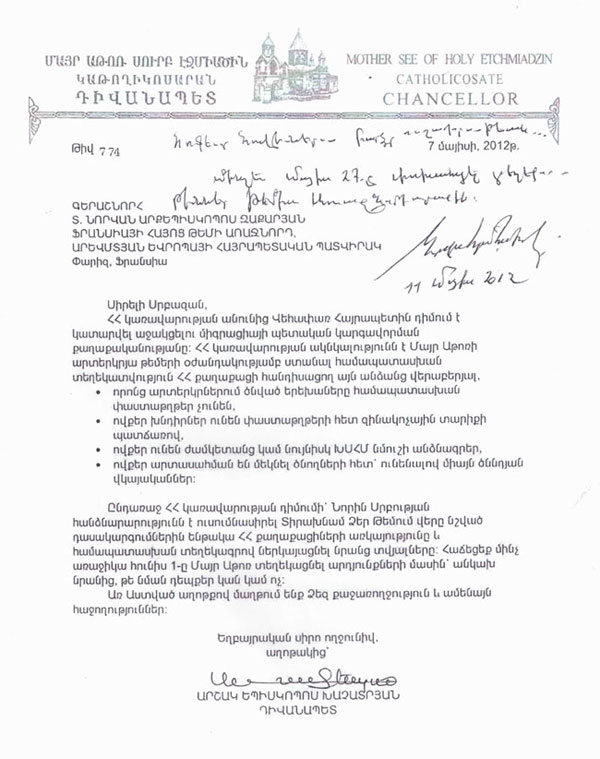 ՄԱՅՐ ԱԹՈՌ ՍՈՒՐԲ ԷՋՄԻԱԾԻՆ
ԿԱԹՈՂԻԿՈՍԱՐԱՆ
ԴԻՎԱՆԱՊԵՏ
MOTHER SEE OF HOLY ETCHMIADZIN
CATHOLICOSATE
CHANCELLOR
Թիվ 774
7 մայիսի, 2012թ.
մինչեւ մայիս 27-ը
ԳԵՐԱՇՆՈՐՀ
Տ. ՆՈՐՎԱՆ ԱՐՔԵՊԻՍԿՈՊՈՍ ԶԱՔԱՐՅԱՆ
ՖՐԱՆՍԻԱՅԻ ՀԱՅՈՑ ԹԵՄԻ ԱՌԱՋՆՈՐԴ,
ԱՐԵՎՄՏՅԱՆ ԵՎՐՈՊԱՅԻ ՀԱՅՐԱՊԵՏԱԿԱՆ ՊԱՏՎԻՐԱԿ
Փարիզ, Ֆրանսիա
11 մայիս 2012
Սիրելի Սրբազան,
ՀՀ կառավարության անունից Վեհափառ Հայրապետին դիմում է
կատարվել աջակցելու միգրացիայի պետական կարգավորման
քաղաքականությանը: ՀՀ կառավարության ակնկալությունն է Մայր Աթոռի
արտերկրյա թեմերի օժանդակությամբ ստանալ համապատասխան
տեղեկատվություն ՀՀ քաղաքացի հանդիսացող այն անձանց վերաբերյալ,
• որոնց արտերկրներում ծնված երեխաները համապատասխան
փաստաթղթեր չունեն,
• ովքեր խնդիրներ ունեն փաստաթղթերի հետ զինակոչային տարիքի
պատճառով,
• ովքեր ունեն ժամկետանց կամ նույնիսկ ԽՍՀՄ նմուշի անձնագրեր,
• ովքեր արտասահման են մեկնել ծնողների հետ՝ ունենալով միայն ծննդյան
վկայականներ:
Ընդառաջ ՀՀ կառավարության դիմումի՝ Նորին Սրբության
հանձնարարությունն է ուսումնասիրել Տիրախնամ Ձեր Թեմում վերը նշված
դասակարգումներին ենթակա ՀՀ քաղաքացիների առկայությունը և
համապատասխան տեղեկագրով ներկայացնել նրանց տվյալները: Հաճեցեք մինչ
առաջիկա հունիս 1-ը Մայր Աթոռ տեղեկացնել արդյունքների մասին՝ անկախ
նրանից, թե նման դեպքեր կան կամ ոչ:
Առ Աստված աղոթքով մաղթում ենք Ձեզ քաջառողջություն և ամենայն
հաջողություններ:
Եղբայրական սիրո ողջունիվ,
աղոթակից՝
ԱՐՇԱԿ ԵՊԻՍԿՈՊՈՍ ԽԱՉԱՏՐՅԱՆ
ԴԻՎԱՆԱՊԵՏ